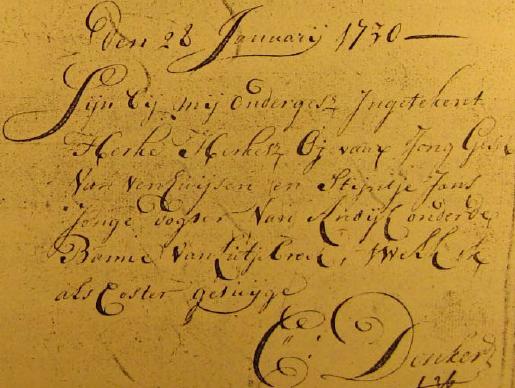 den 28 Januarij 1730
Sijn bij mij ondergesz Ingetekent
Herke Herkesz Jong
Van Venhuijsen en Stijntje Jans
Jonge dogter Van Andijk onder de
Banne Van Lutjebroek,
als Coster getuijge
C: Denker